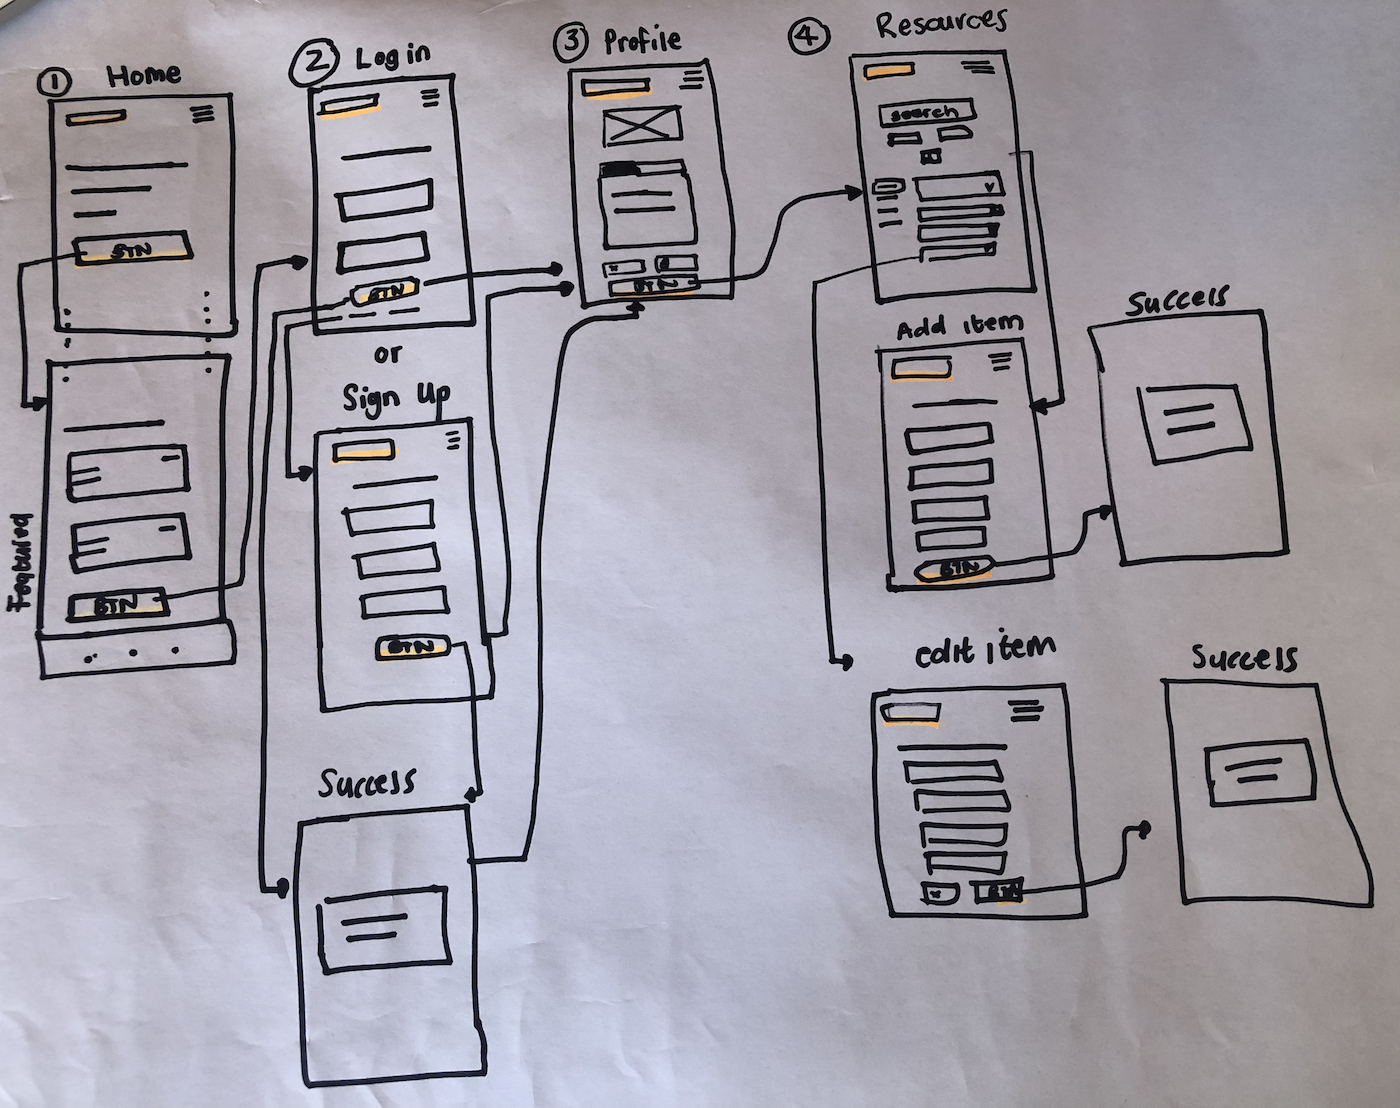 1 Home
BTN
Featured
BTN
2 Log in
BTN
or
Sign Up
BTN
Success
3 Profile
BTN
4 Resources
search
Add item
BTN
Success
edit item
BTN
Success